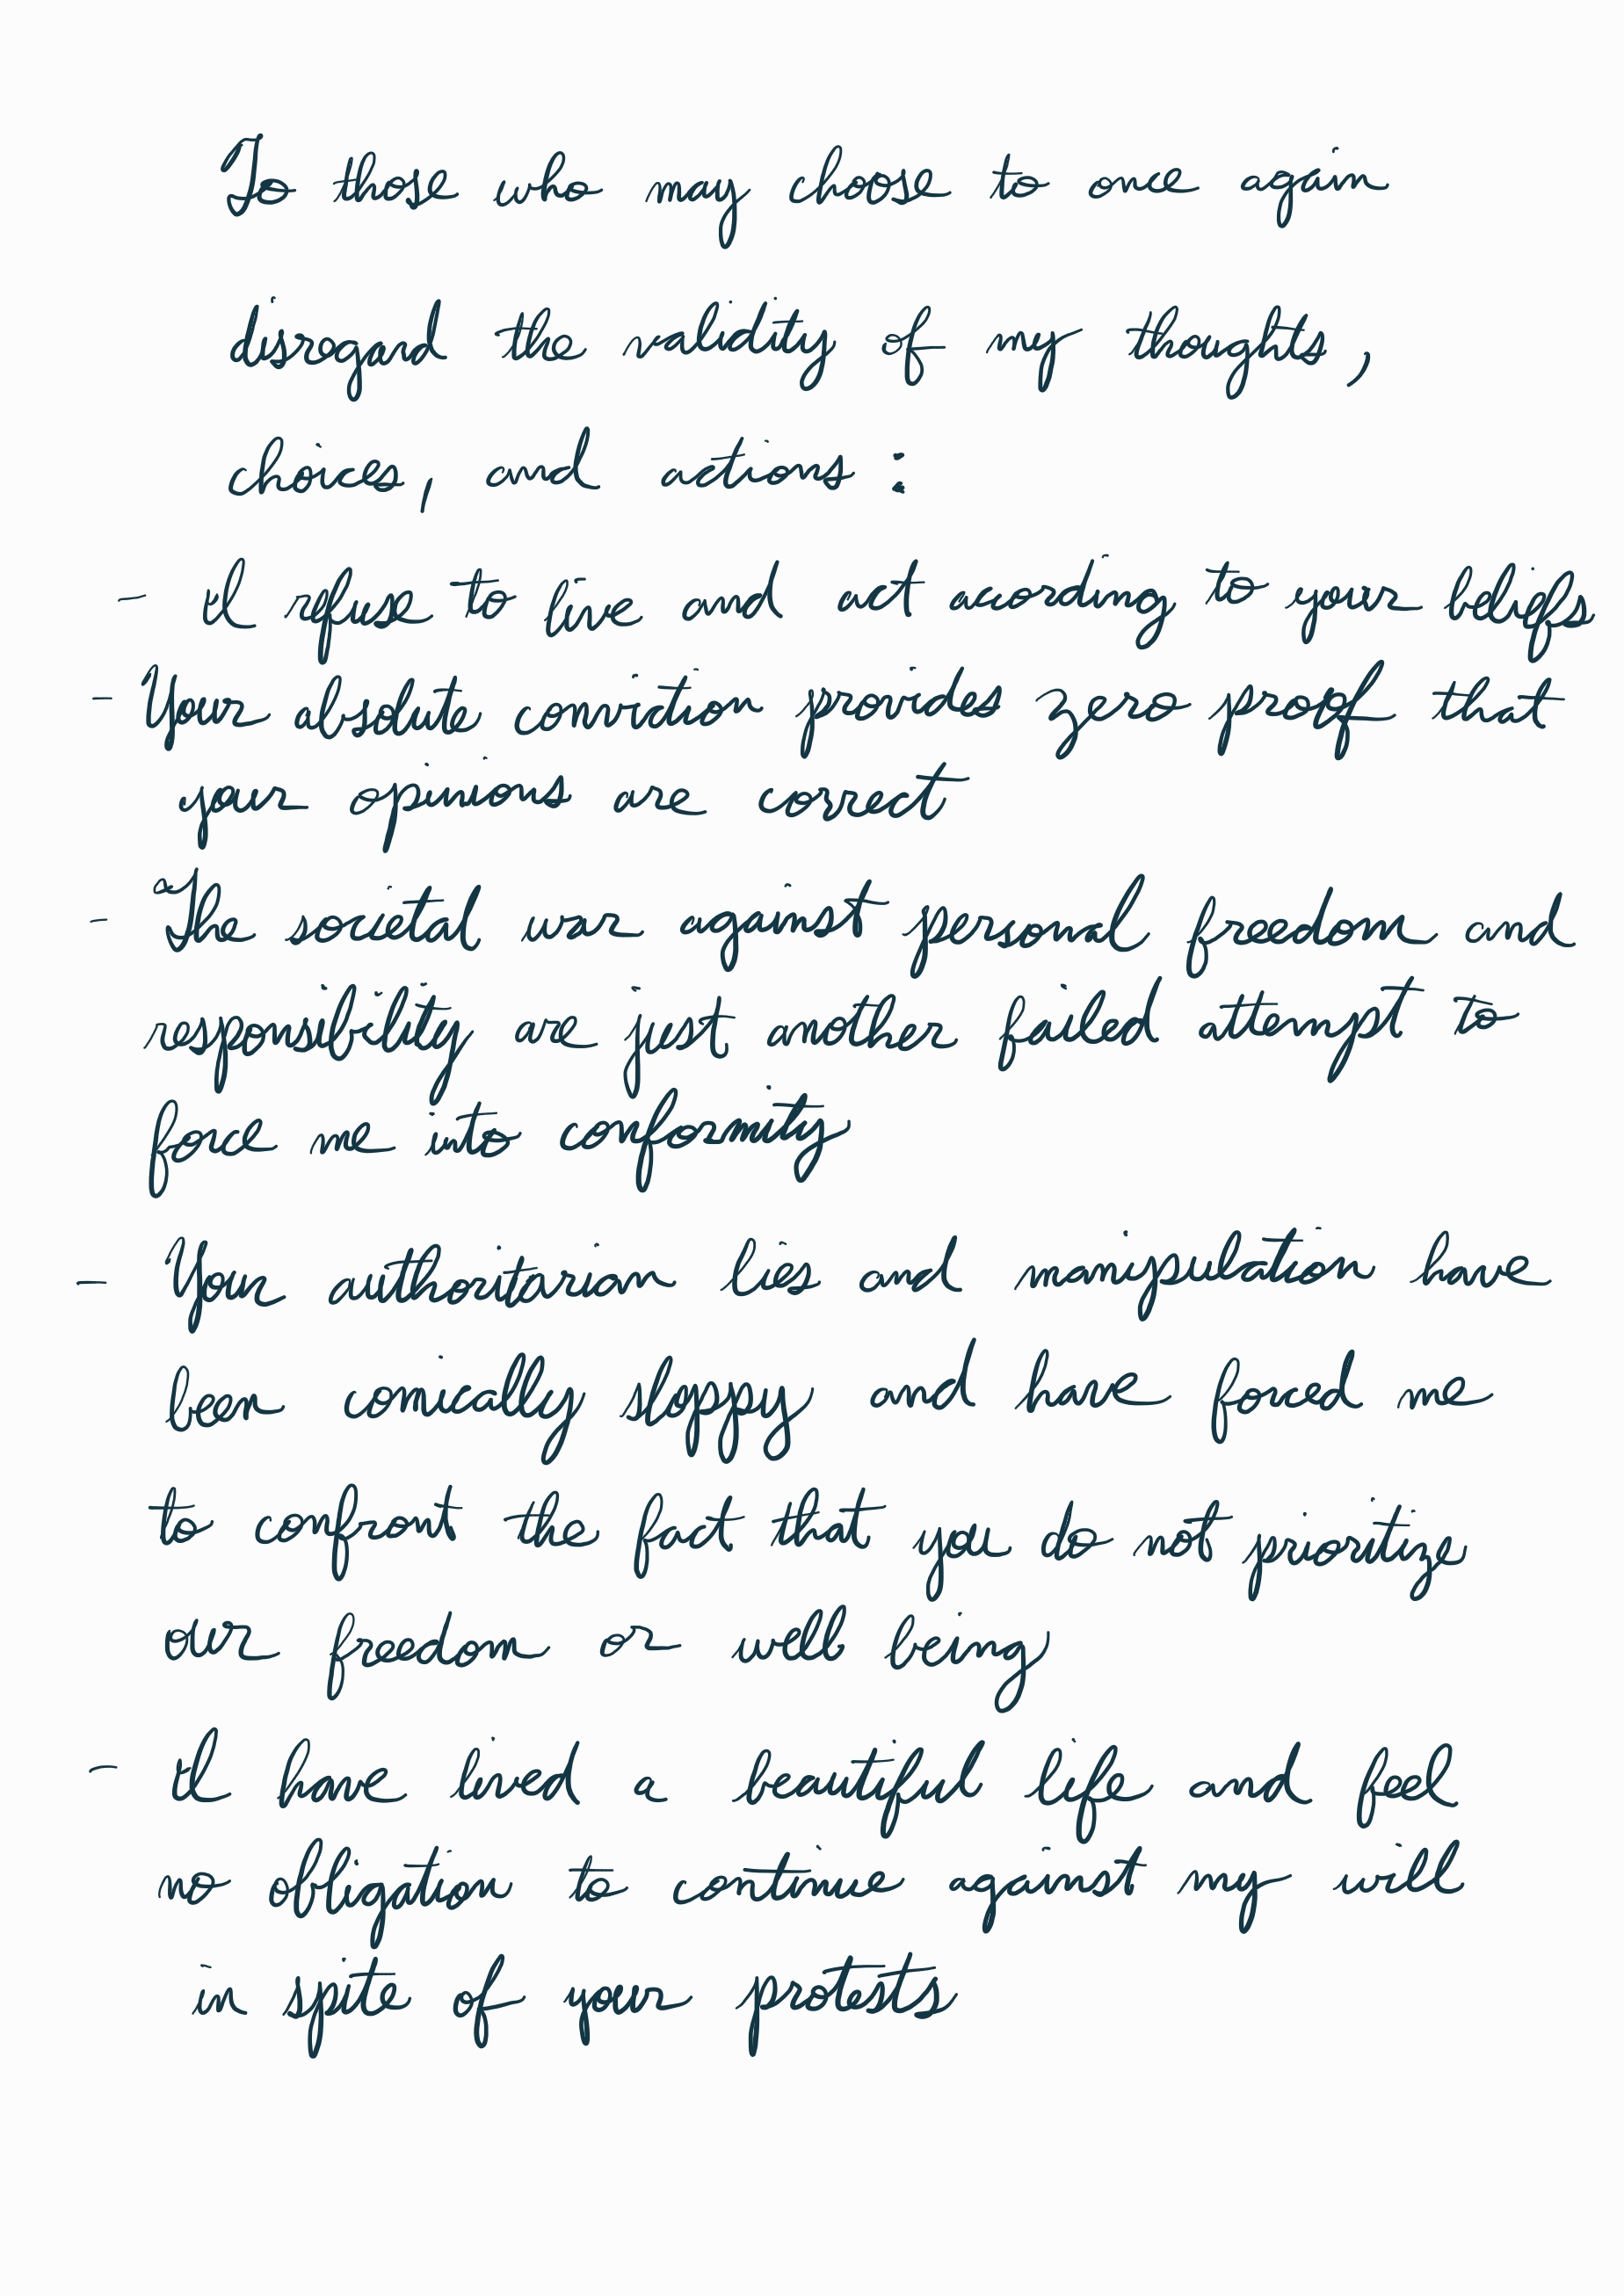 To those who may choose to once again
disregard the validity of my thoughts,
choices, and actions:
- I refuse to live and act acording to your beliefs
- Your absolute conviction provides zero proof that
your opinions are correct
- The societal war against personal freedom and
responsibility are just another failed attempt to
force me into conformity
- Your authoritarian lies and manipulation have
been comically sloppy and have forced me
to confront the fact that you do not prioritize
our freedom or well being
- I have lived a beautiful life and feel
no obligation to continue against my will
in spite of your protests